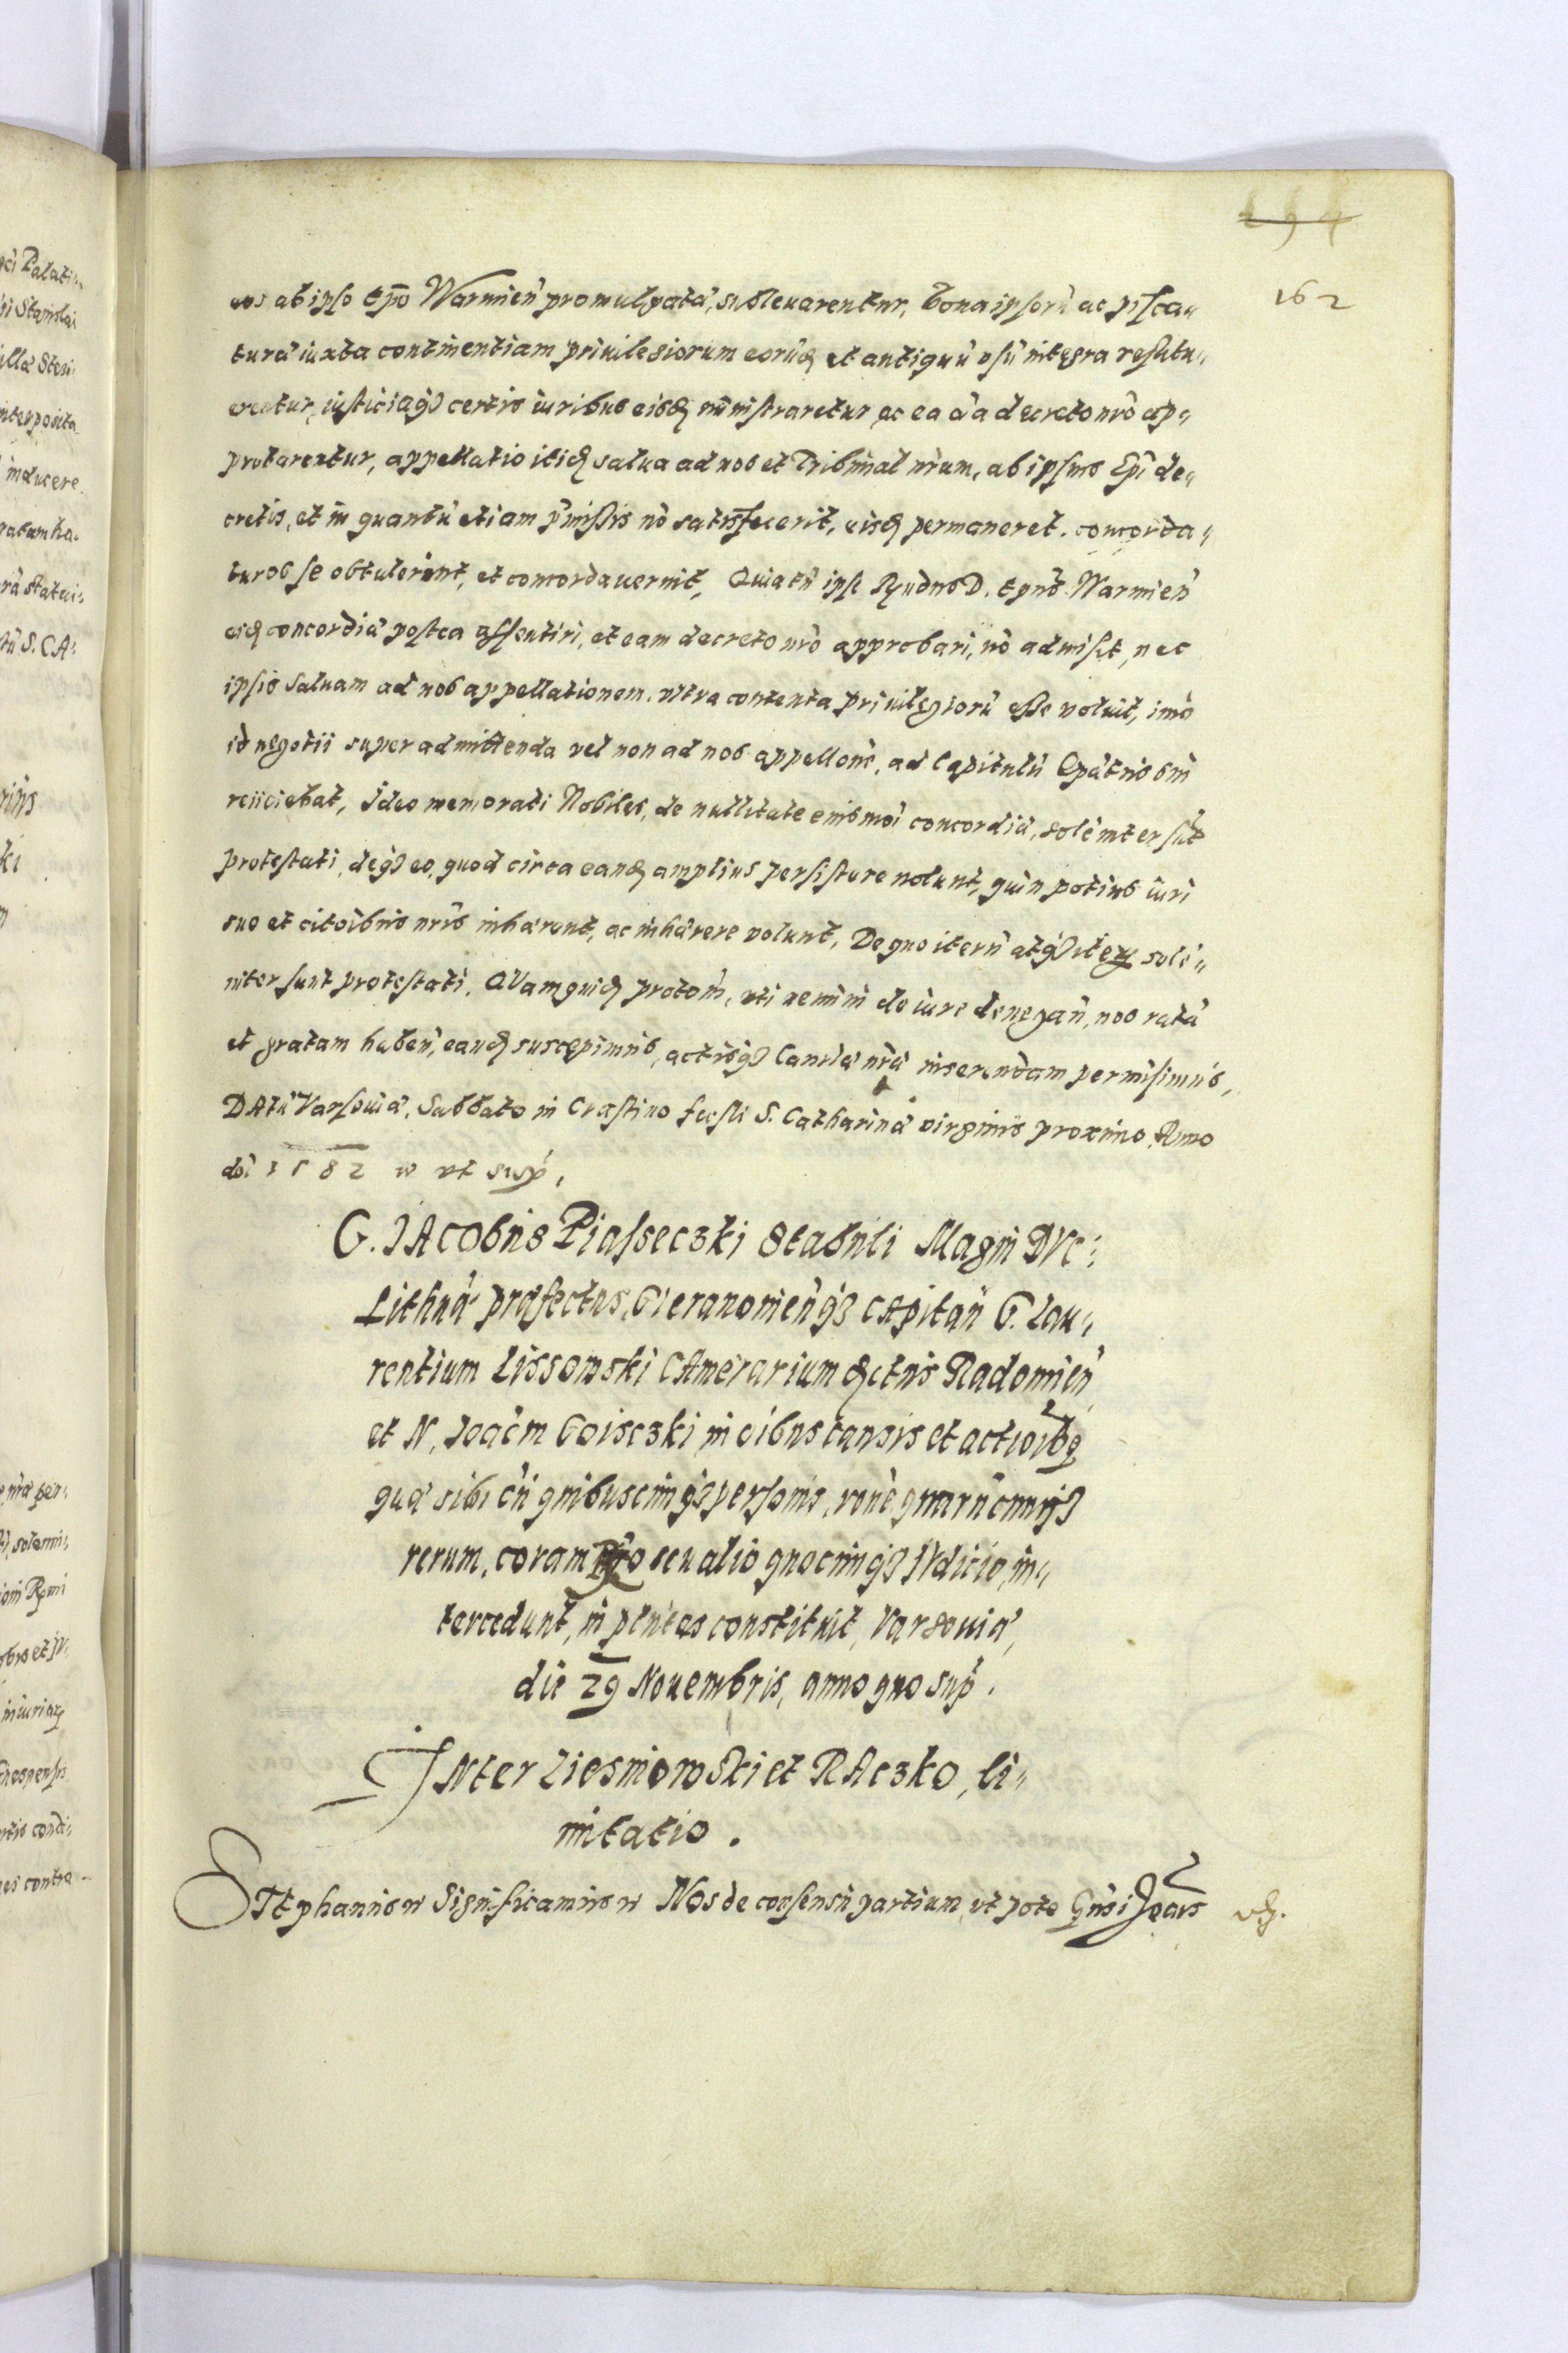 194
162
eos ab ipso Epo Warmień promulgata, subleuarentur, bona ipsorū ac pisca„
tura iuxta continentiam priuilegiorum eorūd et antiquū usū integra restitu„
erentur, iusticiaq certis iuribus eisd ministraretur ac ea oīa decreto nrō ap„
probarentur, appellatio itid salua ad nos et Tribunal nrūm, ab ipsius Epī de„
cretis, et in quantū etiam pmissis nō satisfecerit, eisd permaneret. concorda„
turos se obtulerint, et concordauerint, Quia tn ipse Rndns D. Epus Warmień
eid concordiæ postea assentiri, et eam decreto nrō approbari, nō admisit, nec
ipsis saluam ad nos appellationem, ultra contenta priuilegiorū esse voluit, imo
id negotii super admittenda vel non ad nos appellone, ad Capitulū Epatus sui
reiiciebat, Ideo memorati Nobiles, de nullitate eiusmōi concordiæ, solēniter sūt
protestati, deq eo, quod circa eand amplius persistere nolunt, quin potius iuri
suo et citōibus nris inhærent, ac inhærere volunt, De quo iterū atq iterū solē„
niter sunt protestati. QVam quid protom, uti nemini de iure denegan, nos ratā
et gratam haben, eand suscepimus, actisq Canclæ nræ inserendam permisimus,
DAtū Varsouiæ, Sabbato in Crastino festi S. Catharinæ virginis proximo, Anno
dni 1582 ut sup,
G. JAcobus Piasseczki Stabuli Magni DVc:
Lithuæ præfectus, Gieranomeńq CApitan G. Lau„
rentium Lissowski CAmerarium Radomień
et N. Joacm Goisczki in oibus causis et actioibq
quæ sibi cū quibuscunq personis, rone quarūcunq
rerum, coram seu alio quocunq IVdicio, in„
tercedunt, in plntes constituit, Varsouiæ,
die 29 Nouembris, anno quo sup.
INter Liesniowski et RAczko, li„
mitatio.
STephanus Significamus Nos de consensu partium, ut pote Gnsi Joais